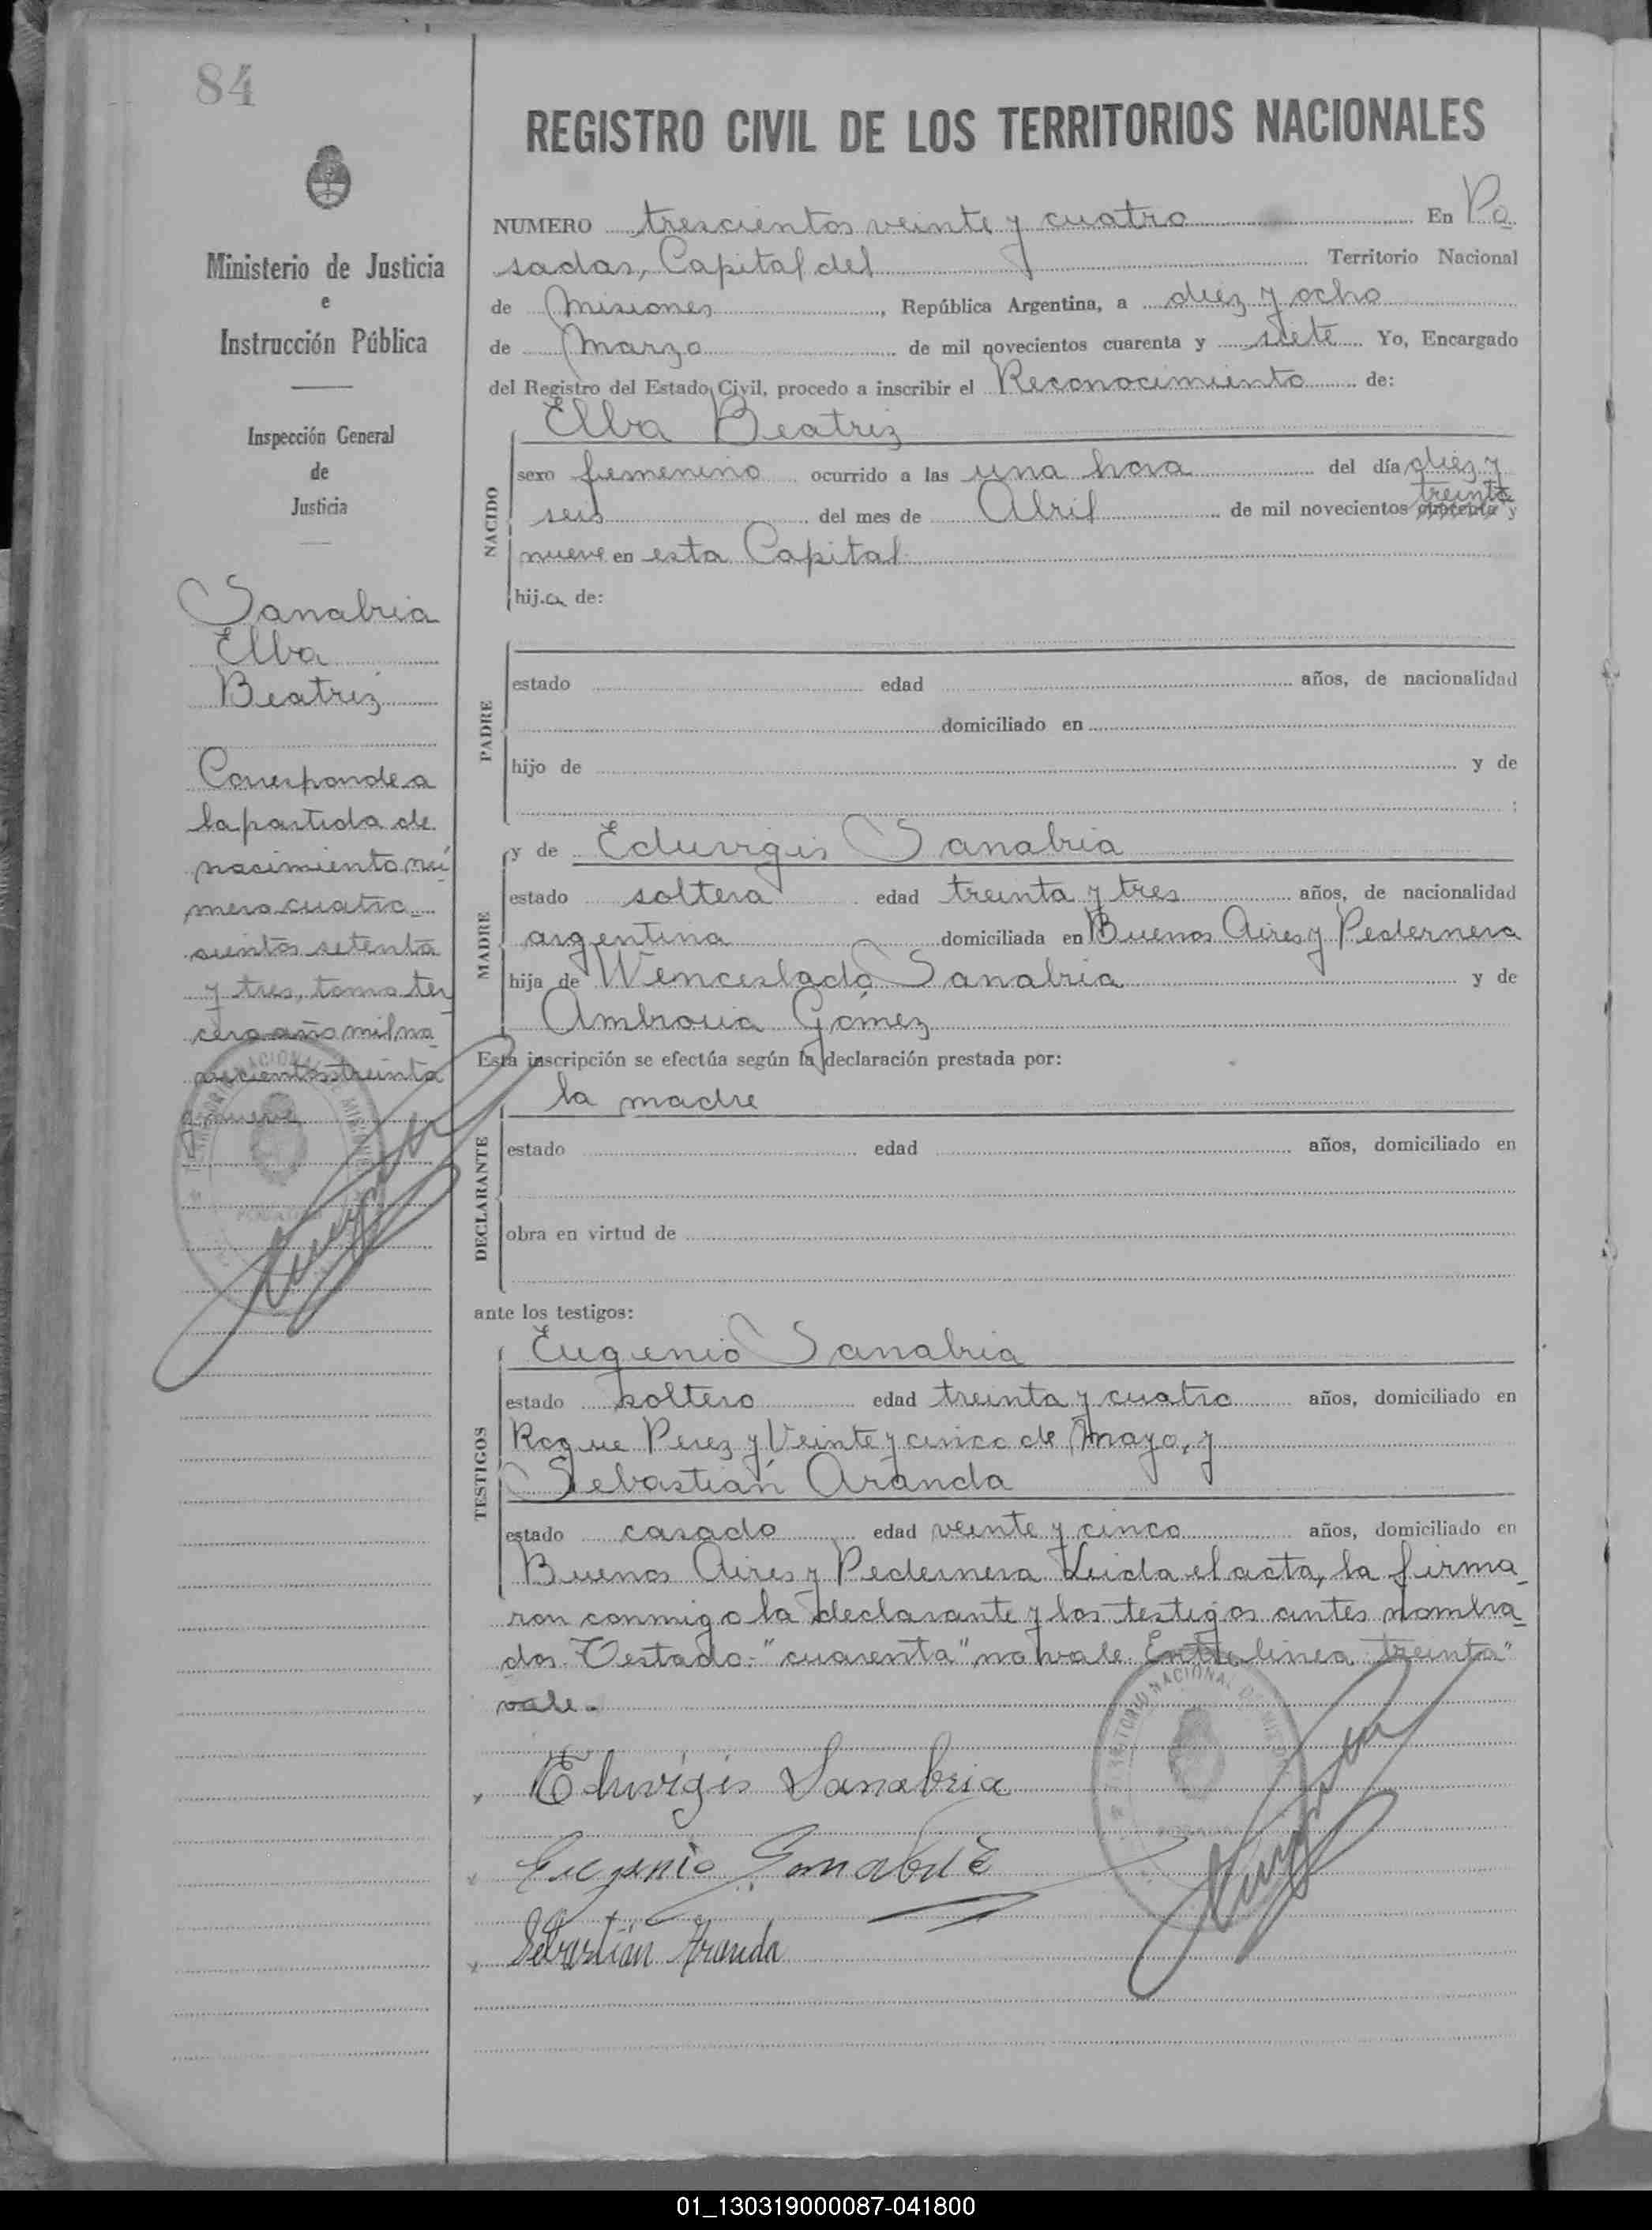 84
Ministerio de Justicia
e
Instrucción Pública
Inspección General
de
Justicia
Sanabria
Elba
Beatriz
Corresponde a
la partida de
nacimiento nú
mero cuatro
cientos setenta
y tres, tomo ter
cero año mil no
vecientos treinta
y nueve
REGISTRO CIVIL DE LOS TERRITORIOS NACIONALES
NUMERO trescientos veinte y cuatro En Po
sadas, Capital del Territorio Nacional
de Misiones, República Argentina, a diez y ocho
de Marzo de mil novecientos cuarenta y siete Yo, Encargado
del Registro del Estado Civil, procedo a inscribir el Reconocimiento de:
NACIDO
Elba Beatriz
sexo femenino ocurrido a las una hora del día diez y
treinta
seis del mes de Abril de mil novecientos cuarenta y
nueve en esta Capital
hija de:
PADRE
estado edad años, de nacionalidad
domiciliado en
hijo de y de
;
MADRE
y de Eduvigis Sanabria
estado soltera edad treinta y tres años, de nacionalidad
argentina domiciliada en Buenos Aires y Pedernera
hija de Wenceslado Sanabria y de
Ambrosia Gómez
Esta inscripción se efectúa según la declaración prestada por:
DECLARANTE
la madre
estado edad años, domiciliado en
obra en virtud de
ante los testigos:
TESTIGOS
Eugenio Sanabria
estado soltero edad treinta y cuatro años, domiciliado en
Roque Perez y Veinte y cinco de Mayo, y
Sebastián Aranda
estado casado edad veinte y cinco años, domiciliado en
Buenos Aires y Pedernera Leida el acta, la firma_
ron conmigo la declarante y los testigos antes nombra_
dos. Testado: "cuarenta" no vale. Entre linea "treinta"
vale.
Eduvigis Sanabria
Eugenio Sanabria
Sebastián Aranda
01_130319000087-041800